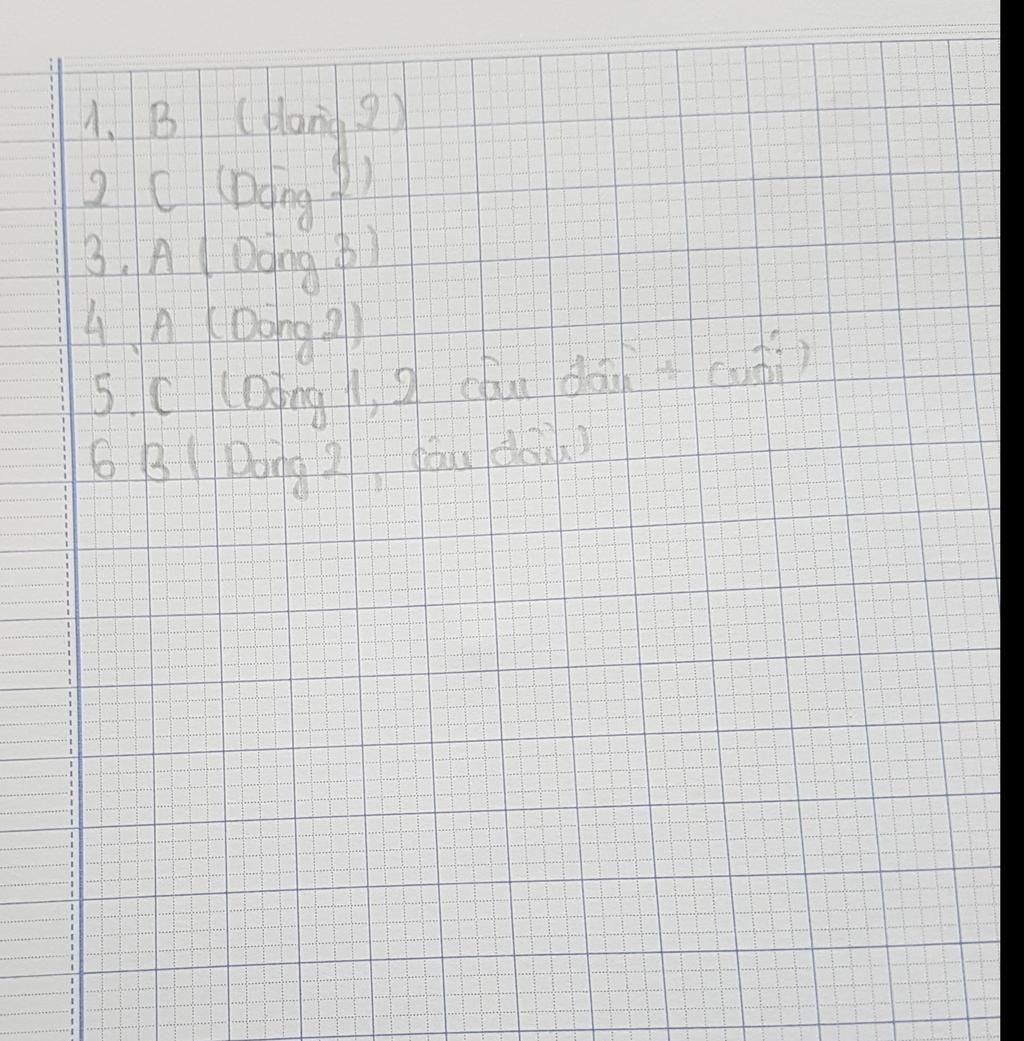 1. B (Hàng 2)
2 C (Dòng 1)
3. A (Dòng 3)
4. A (Dòng 2)
5. C (Dòng 1, 2 câu đầu + cuối)
6 B (Dòng 2, câu đầu)